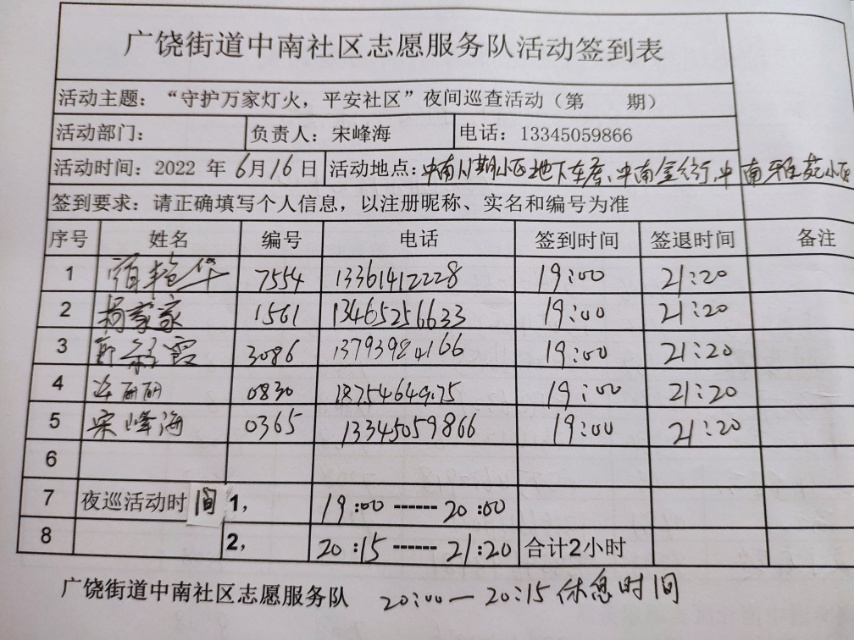 广饶街道中南社区志愿服务队活动签到表
活动主题：“守护万家灯火，平安社区”夜间巡查活动（第　　期）
活动部门： 负责人：宋峰海 电话：13345059866
活动时间：2022 年 6月16日 活动地点：中南八期小区地下车库、中南金街、中南雅苑小区
签到要求：请正确填写个人信息，以注册昵称、实名和编号为准
序号 姓名 编号 电话 签到时间 签退时间 备注
1 艳华 7554 13361412228 19:00 21:20
2 杨家家 1561 13465256633 19:00 21:20
3 霞 3086 13793984166 19:00 21:20
4 丽丽 0830 19:00 21:20
5 宋峰海 0365 13345059866 19:00 21:20
6
7 夜巡活动时间 1， 19:00 ------ 20:00
8 2， 20:15 ------ 21:20 合计2小时
广饶街道中南社区志愿服务队 20:00—20:15休息时间